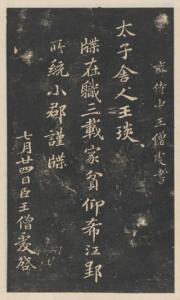 齊侍中王僧虔書
太子舍人王琰
牒在職三載家貧仰希江郢
所統小郡謹牒
七月廿四日臣王僧虔啓